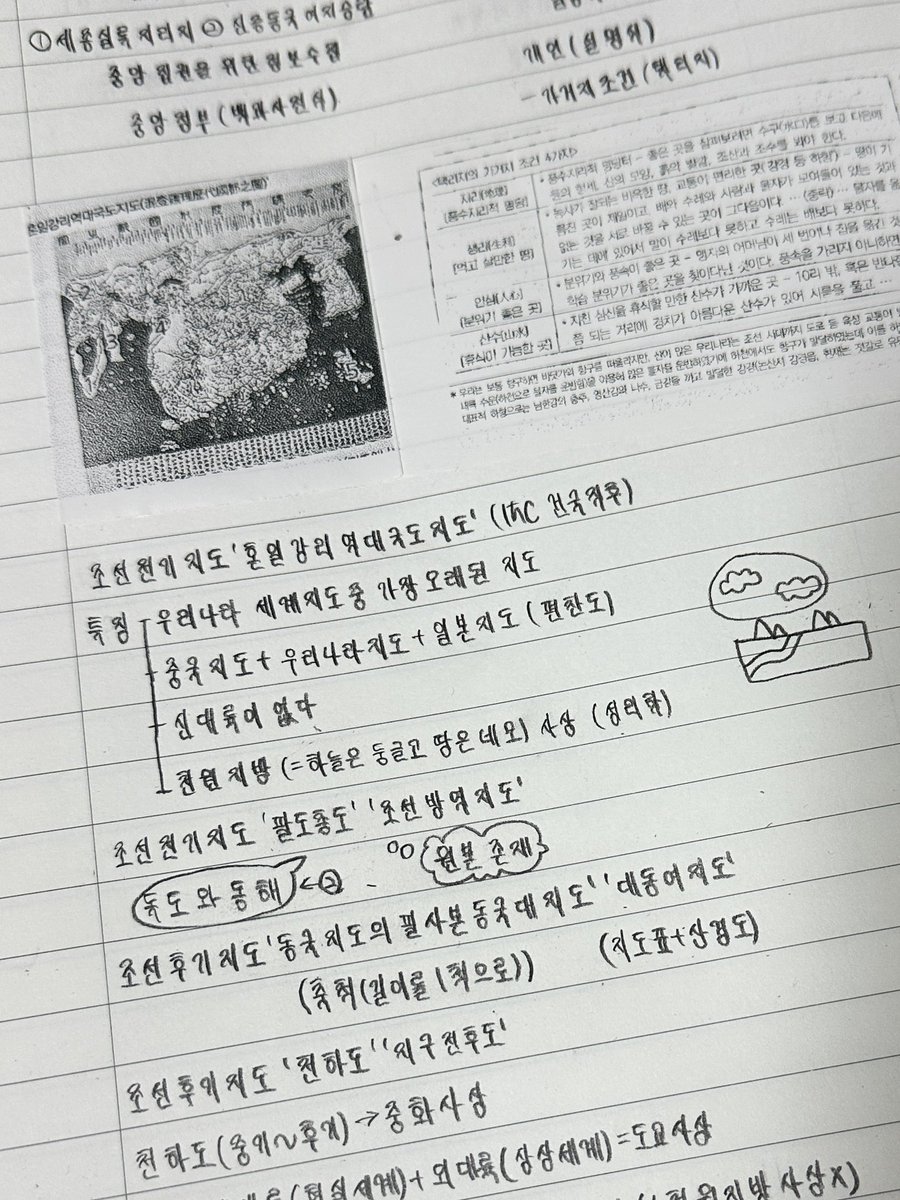 ①세종실록 지리지 ② 신증동국여지승람
중앙 집권을 위한 정보수집
중앙 정부 (백과사전식)
개인 (설명식)
- 가거지 조건 (택리지)
혼일강리역대국도지도(混一疆理歷代國都之圖)
<택리지의 가거지 조건 4가지>
지리(地理)
(풍수지리적 명당)
• 풍수지리적 명당터 - 좋은 곳을 살펴보려면 수구(水口)를 보고, 다음에
들의 형세, 산의 모양, 흙의 빛깔, 조산과 조수를 봐야 한다.
생리(生利)
(먹고 살만한 땅)
• 농사가 잘되는 비옥한 땅, 교통이 편리한 곳(강경 등 하항) - 땅이 기
름진 곳이 제일이고, 배와 수레와 사람과 물자가 모여들어 있는 것과
없는 것을 서로 바꿀 수 있는 곳이 그다음이다. … (중략) … 물자를 옮
기는 데에 있어서 말이 수레보다 못하고 수레는 배보다 못하다.
인심(人心)
(분위기 좋은 곳)
• 분위기와 풍속이 좋은 곳 - 맹자의 어머님이 세 번이나 집을 옮긴 것
학습 분위기가 좋은 곳을 찾아다닌 것이다. 풍속을 가리지 아니하면
산수(山水)
(휴식이 가능한 곳)
• 지친 심신을 휴식할 만한 산수가 가까운 곳 - 10리 밖, 혹은 반나절
쯤 되는 거리에 경치가 아름다운 산수가 있어 시름을 풀고 …
* 우리는 보통 항구하면 바닷가의 항구를 떠올리지만, 산이 많은 우리나라는 조선 시대까지 도로 등 육상 교통이
대표적 하항으로는 남한강의 충주, 영산강의 나주, 금강을 끼고 발달한 강경(논산시 강경읍,
3
4
15
조선전기지도 '혼일강리역대국도지도' (1402 건국직후)
특징 - 우리나라 세계지도 중 가장 오래된 지도
- 중국지도 + 우리나라지도 + 일본지도 (편찬도)
- 신대륙이 없다
- 천원지방 (=하늘은 둥글고 땅은 네모) 사상 (성리학)
조선전기지도 '팔도총도' '조선방역지도'
독도와 동해 ←② 원본 존재
조선후기지도 '동국지도의 필사본 동국대지도' '대동여지도'
(축척(길이를 1척으로)) (지도표+산경도)
조선후기지도 '천하도' '지구전후도'
천하도(중기~후기) → 중화사상
(현실세계) + 외대륙(상상세계) = 도교사상
천원지방 사상X)